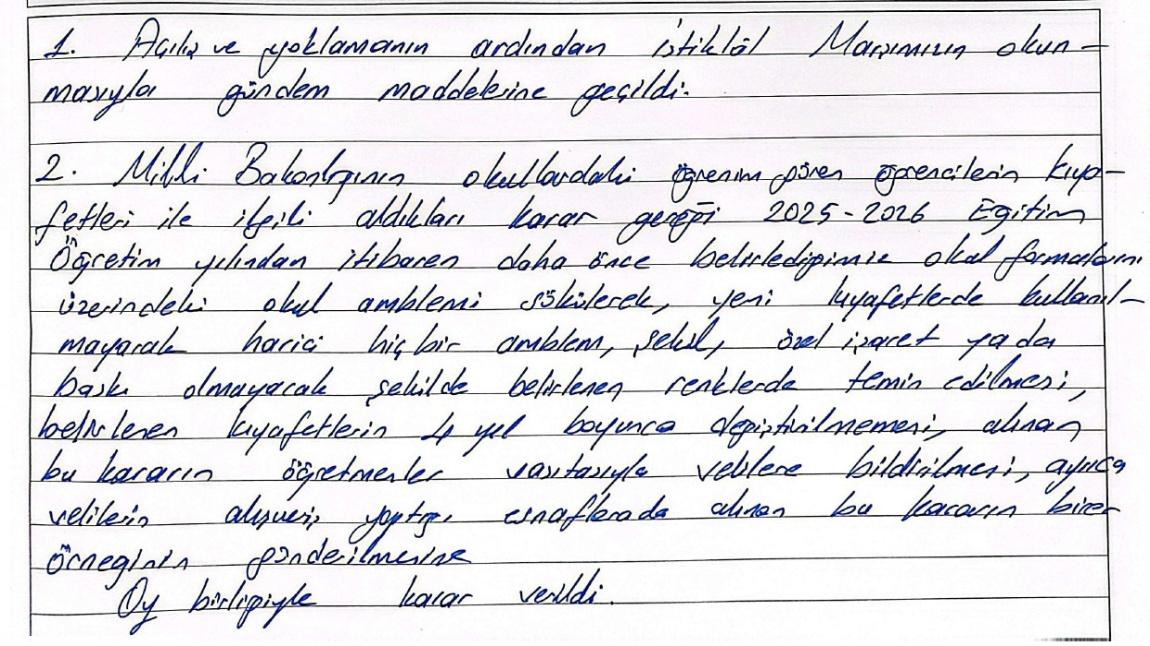 1. Açılış ve yoklamanın ardından İstiklâl Marşımızın okun-
masıyla gündem maddelerine geçildi.
2. Milli Bakanlığının okullardaki öğrenim gören öğrencilerin kıya-
fetleri ile ilgili aldıkları karar gereği 2025-2026 Eğitim
Öğretim yılından itibaren daha önce belirlediğimiz okul formaların
üzerindeki okul amblemi sökülerek, yeni kıyafetlerde kullanıl-
mayarak harici hiç bir amblem, şekil, özel işaret ya da
baskı olmayacak şekilde belirlenen renklerde temin edilmesi,
belirlenen kıyafetlerin 4 yıl boyunca değiştirilmemesi, alınan
bu kararın öğretmenler vasıtasıyla velilere bildirilmesi, ayrıca
velilerin alışveriş yaptığı esnaflarada alınan bu kararın birer
örneğinin gönderilmesine
Oy birliğiyle karar verildi.